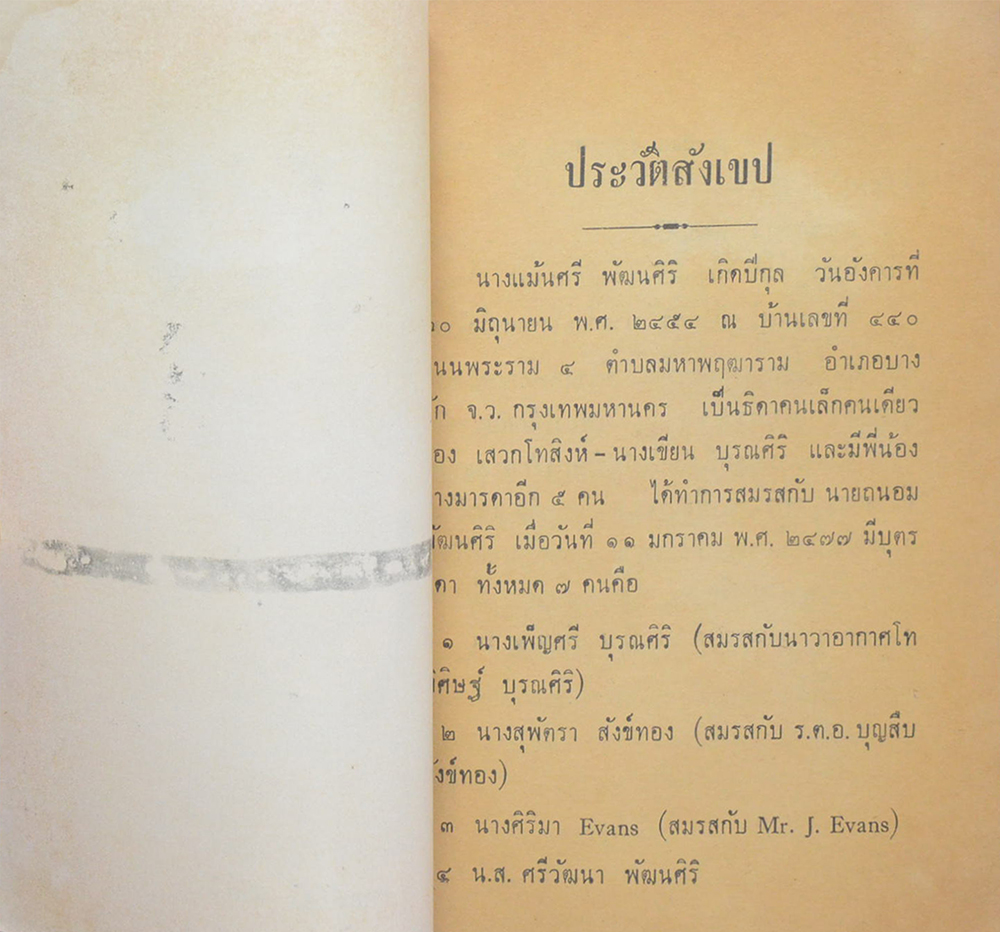 ประวัติสังเขป
นางแม้นศรี พัฒนศิริ เกิดปีกุล วันอังคารที่
๐ มิถุนายน พ.ศ. ๒๔๕๔ ณ บ้านเลขที่ ๔๔๐
นนพระราม ๔ ตำบลมหาพฤฒาราม อำเภอบาง
รัก จ.ว. กรุงเทพมหานคร เป็นธิดาคนเล็กคนเดียว
อง เสวกโทสิงห์ – นางเขียน บุรณศิริ และมีพี่น้อง
างมารดาอีก ๕ คน ได้ทำการสมรสกับ นายถนอม
พัฒนศิริ เมื่อวันที่ ๑๑ มกราคม พ.ศ. ๒๔๗๗ มีบุตร
ดา ทั้งหมด ๗ คนคือ
๑ นางเพ็ญศรี บุรณศิริ (สมรสกับนาวาอากาศโท
พิศิษฐ์ บุรณศิริ)
๒ นางสุพัตรา สังข์ทอง (สมรสกับ ร.ต.อ. บุญสืบ
สังข์ทอง)
๓ นางศิริมา Evans (สมรสกับ Mr. J. Evans)
๔ น.ส. ศรีวัฒนา พัฒนศิริ